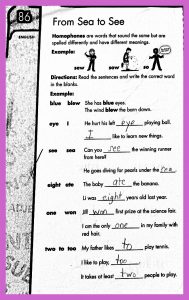 86
ENGLISH
From Sea to See
Homophones are words that sound the same but are
spelled differently and have different meanings.
Example:
saw sew so
Directions: Read the sentences and write the correct word
in the blanks.
Example:
blue blew She has blue eyes.
The wind blew the barn down.
eye I He hurt his left eye playing ball.
I like to learn new things.
see sea Can you see the winning runner
from here?
He goes diving for pearls under the sea.
eight ate The baby ate the banana.
Li was eight years old last year.
one won Jill won first prize at the science fair.
I am the only one in my family with
red hair.
two to too My father likes to play tennis.
I like to play, too.
It takes at least two people to play.